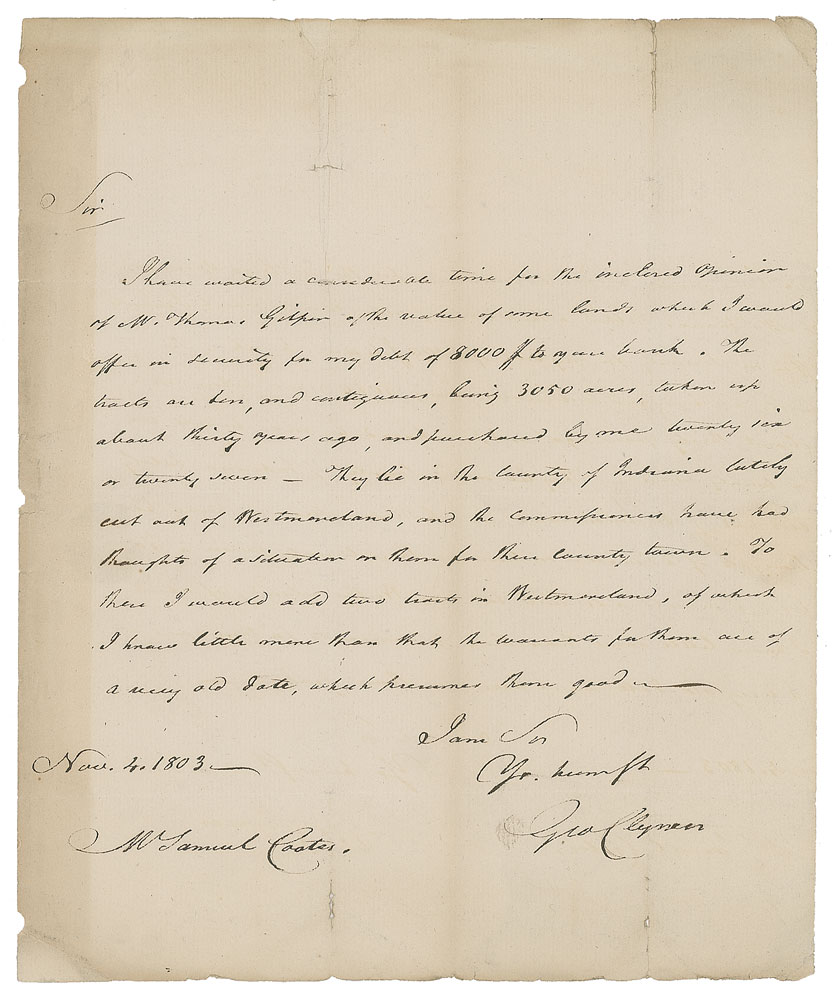 Sir
I have waited a considerable time for the inclosed opinion
of Mr. Thomas Gilpin of the value of some lands which I would
offer in security for my debt of 8000 to your bank. The
tracts are ten, and contiguous, being 3050 acres, taken up
about thirty years ago, and purchased by me twenty six
or twenty seven — They lie in the County of Indiana lately
cut out of Westmoreland, and the Commissioners have had
thoughts of a situation on them for their County town. To
these I would add two tracts in Westmoreland, of which
I know little more than that the warrants for them are of
a very old date, which presumes them good —
I am Sir
Nov. 4. 1803 —
Yr. hum st
Geo Clymer
Mr Samuel Coates.